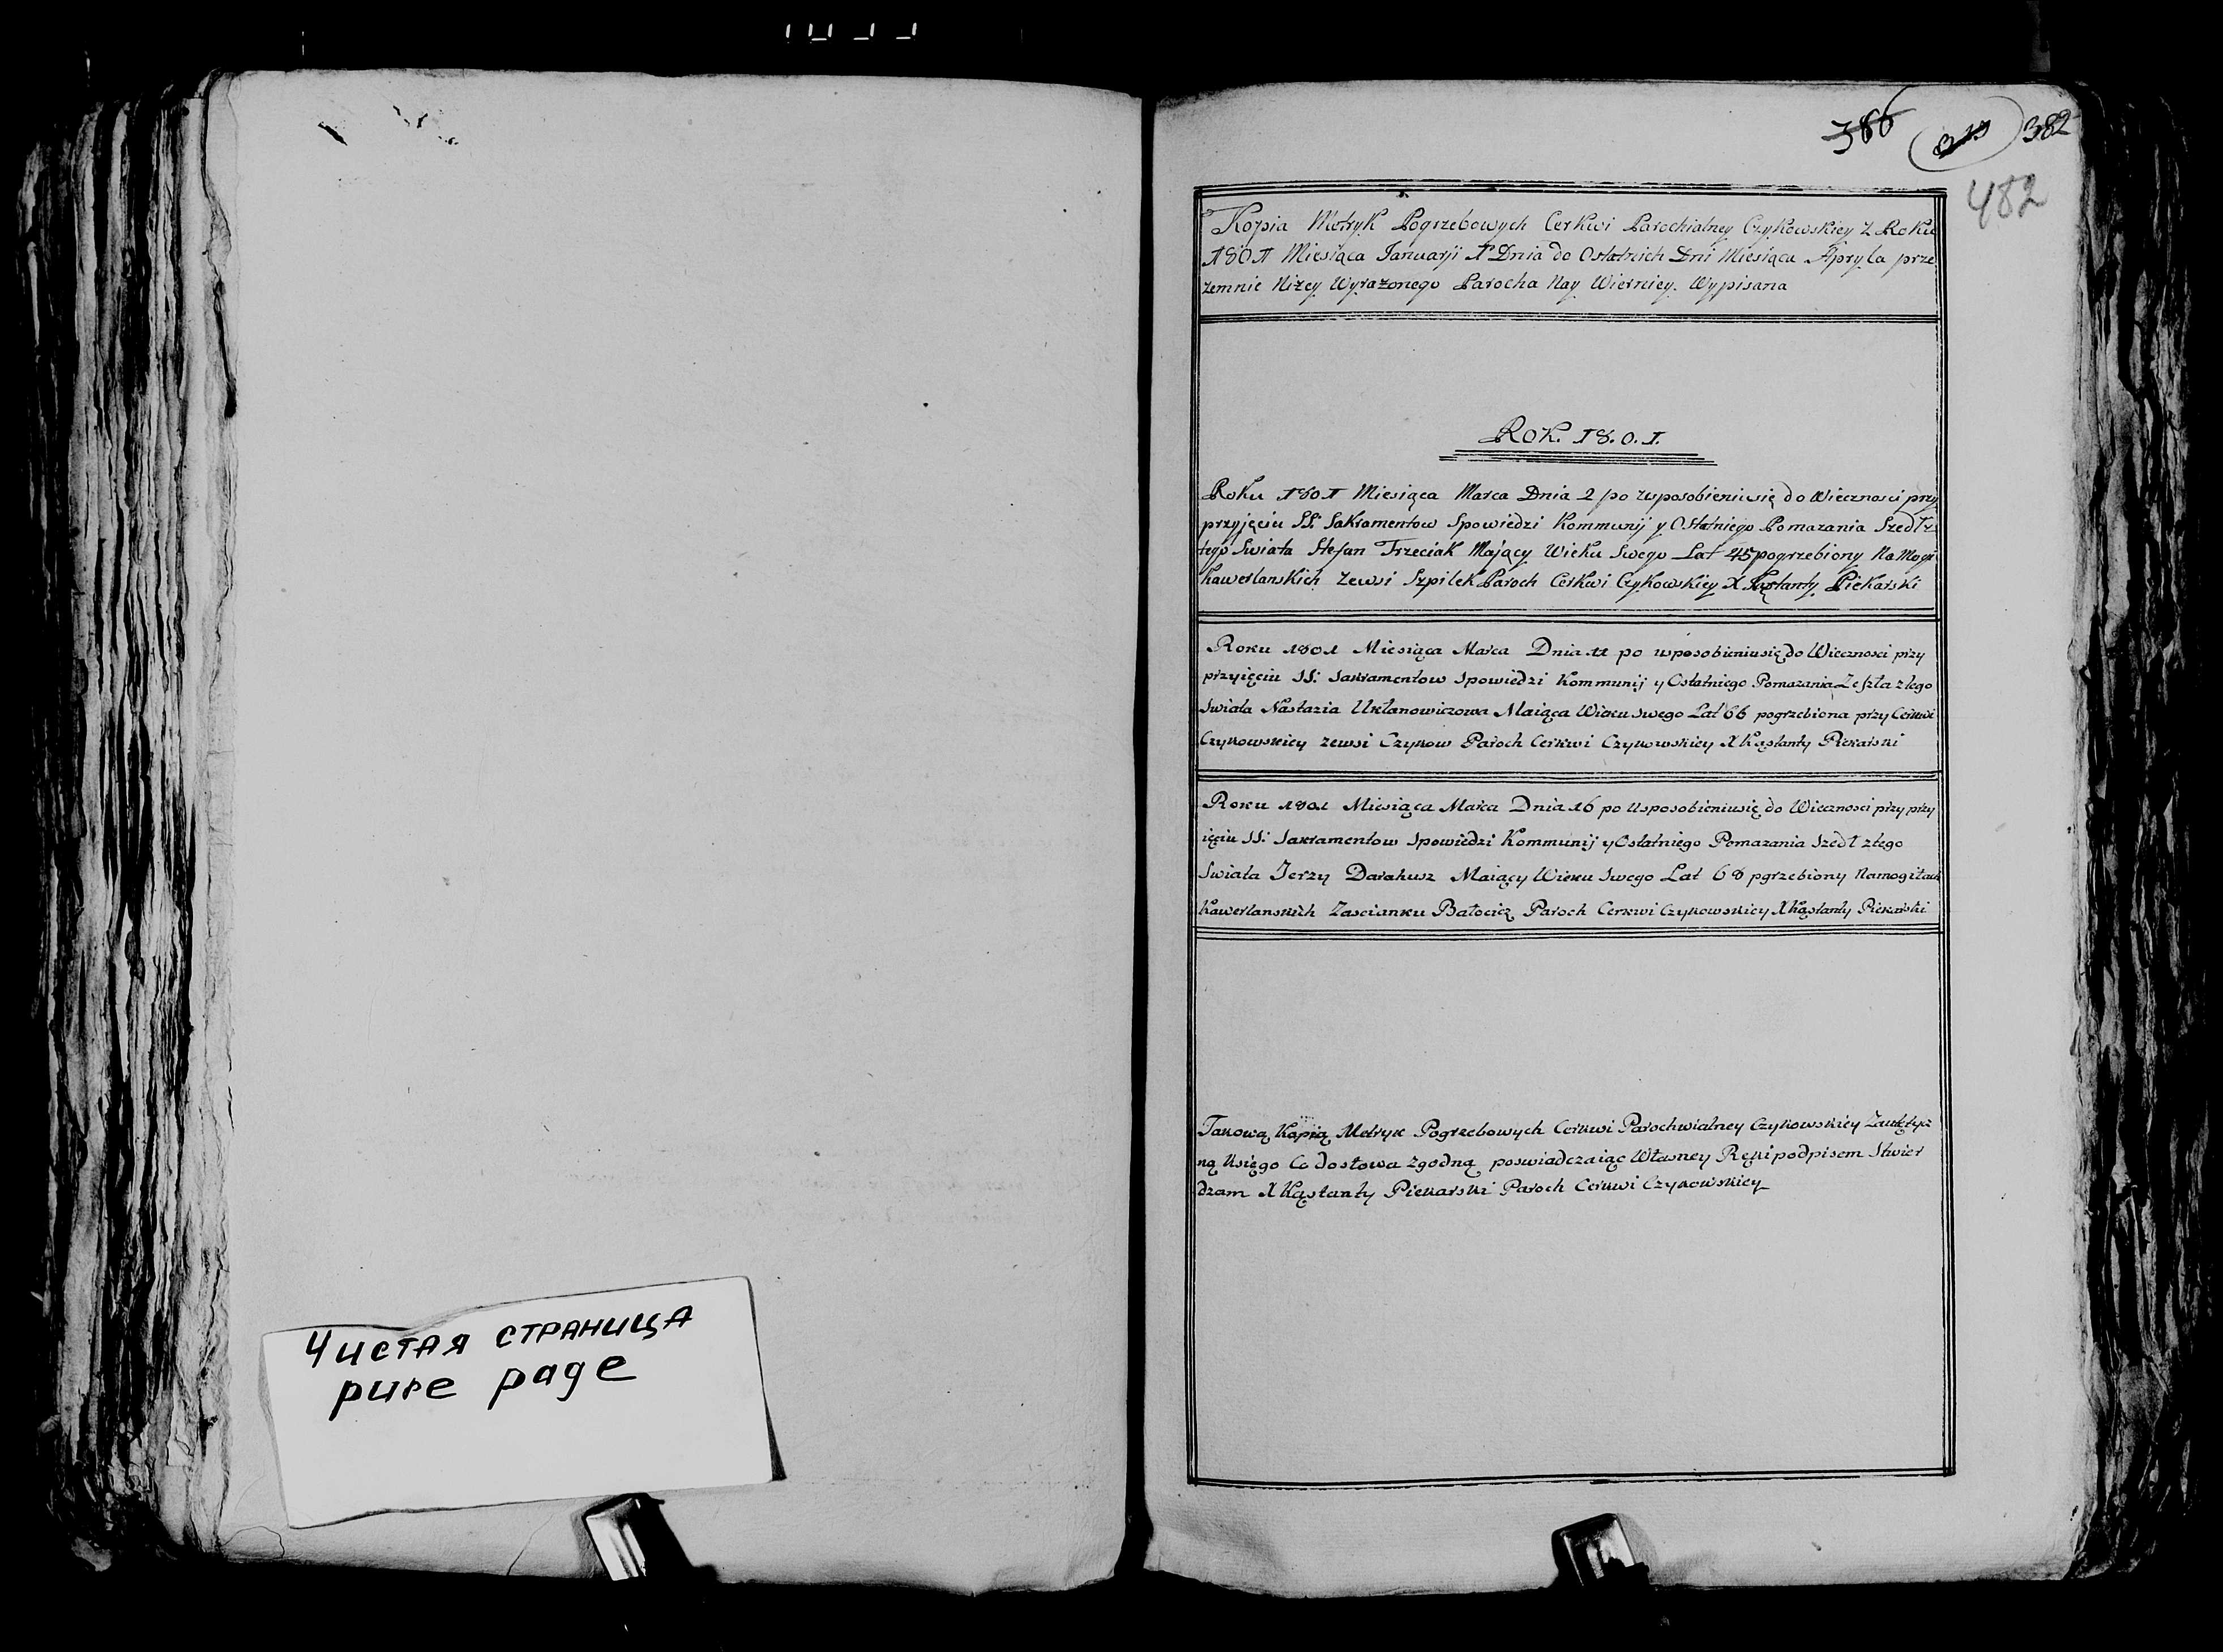 Чистая страница
pure page
386 382
482
Kopia Metryk Pogrzebowych Cerkwi Parochialney Czykowskiey z Roku
1801 Miesiąca Januarji 1 Dnia do Ostatnich Dni Miesiąca Apryla prze
zemnie Niżey Wyrażonego Parocha Nay Wierniey Wypisana
Rok. 18.0.1.
Roku 1801 Miesiąca Marca Dnia 2 po usposobieniusię do Wiecznosci przy
przyjęciu SS: Sakramentow Spowiedzi Kommunij y Ostatniego Pomazania Szedł z
tego Swiata Stefan Trzeciak Mający Wieku Swego Lat 45 pogrzebiony Na Mogi
Kawerlanskich zewsi Szpilek Paroch Cerkwi Czykowskiey X Kąstanty Piekarski
Roku 1801 Miesiąca Marca Dnia 11 po usposobieniusię do Wiecznosci przy
przyięciu SS: Sakramentow Spowiedzi Kommunij y Ostatniego Pomazania Zeszła ztego
Swiata Nastazia Uktanowiczowa Maiąca Wieku Swego Lat 66 pogrzebiona przy Cerkwi
Czykowskiey zewsi Czykow Paroch Cerkwi Czykowskiey X Kąstanty Piekarski
Roku 1801 Miesiąca Marca Dnia 16 po Usposobieniusię do Wiecznosci przy przy
ięciu SS: Sakramentow Spowiedzi Kommunij y Ostatniego Pomazania Szedł ztego
Swiata Jerzy Darahusz Maiący Wieku Swego Lat 68 pgrzebiony Namogiłach
Kawerlanskich Zascianku Batocicz Paroch Cerkwi Czykowskiey X Kąstanty Piekarski
Takową Kopią Metryk Pogrzebowych Cerkwi Parochwialney Czykowskiey Zauktycz
ną Ksiego Co dosłowa zgodną poswiadczaiąc Własney Ręki podpisem Stwier
dzam X Kąstanty Piekarski Paroch Cerkwi Czykowskiey